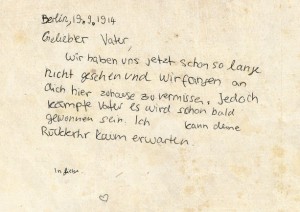 Berlin, 19.9.1914
Geliebter Vater,
Wir haben uns jetzt schon so lange
nicht gesehen und wir fangen an
dich hier zuhause zu vermissen. Jedoch
kämpfe Vater es wird schon bald
gewonnen sein. Ich kann deine
Rückkehr kaum erwarten.
In